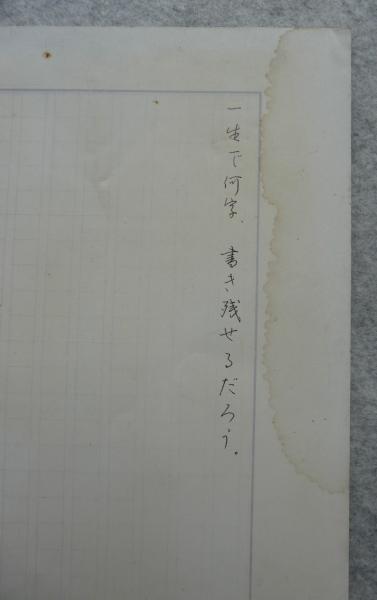 一生で何字、書き残せるだろう。